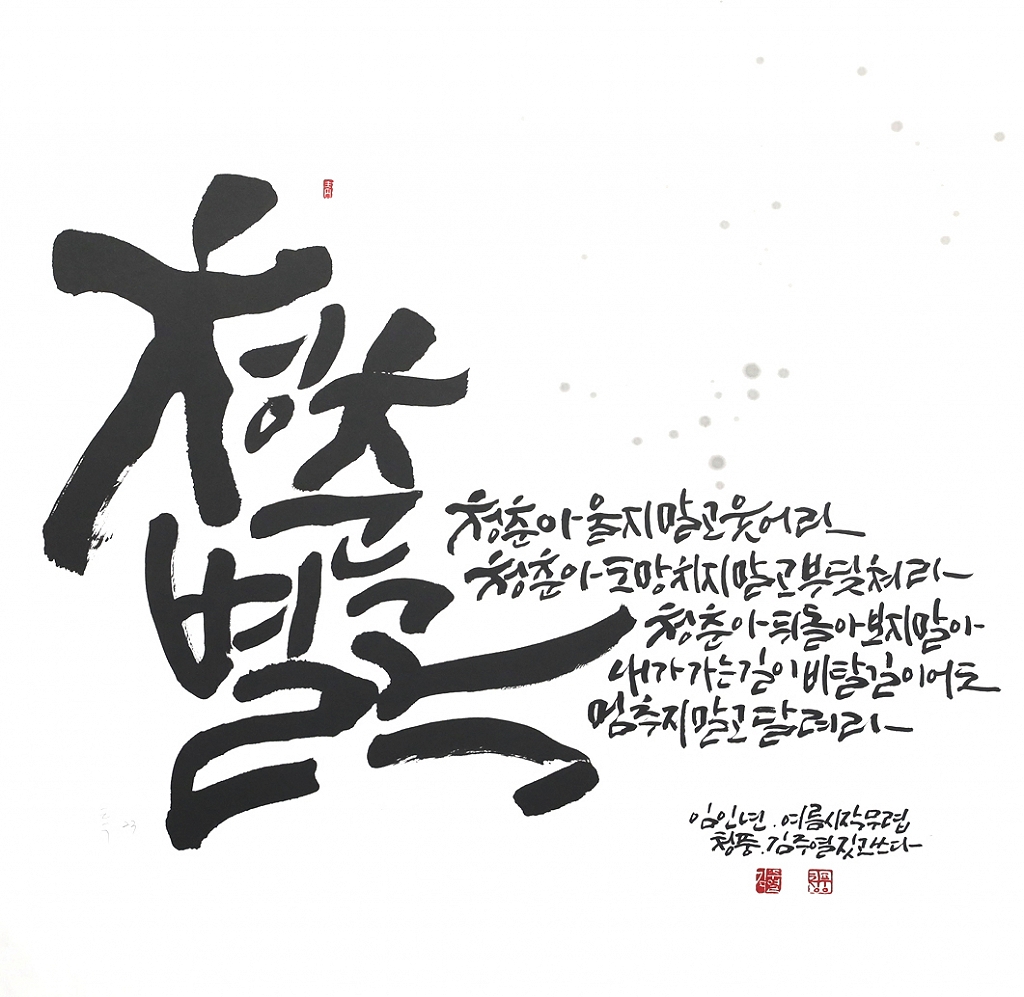 청춘
별곡
청춘아 울지말고 웃어라
청춘아 도망치지말고 부딪쳐라
청춘아 뒤돌아보지말아
내가 가는길이 비탈길이어도
멈추지말고 달려라
임인년. 여름시작무렵
청풍. 김주열 짓고쓰다